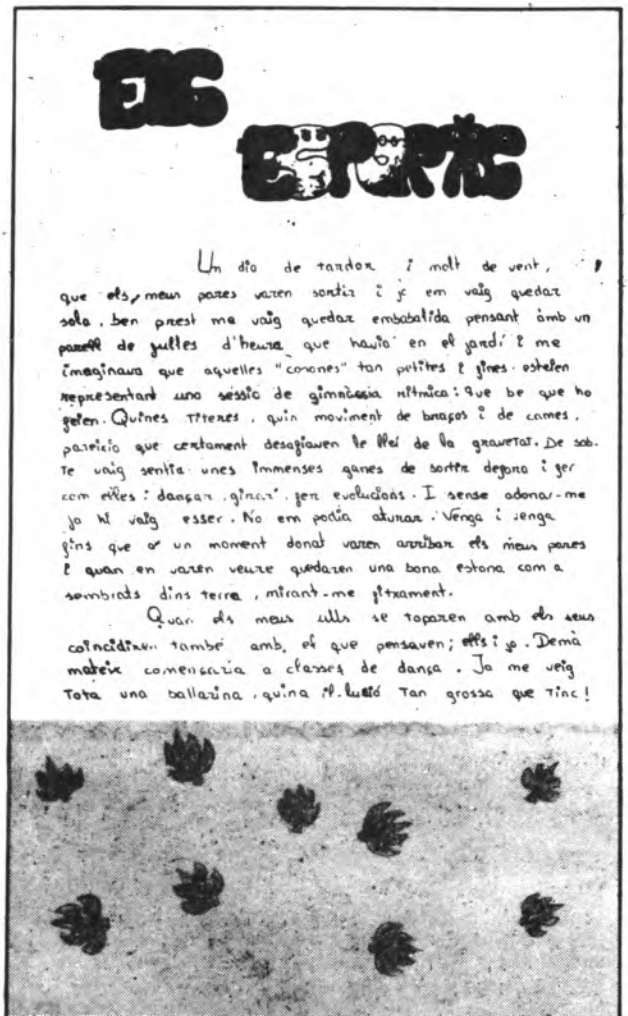 ELS
ESPORTS
Un dia de tardor i molt de vent,
que els meus pares varen sortir i jo em vaig quedar
sola, ben prest me vaig quedar embabalida pensant amb un
parell de fulles d'heura que havia en el jardí i me
imaginava que aquelles "corones" tan petites i fines esteien
representant una sessió de gimnàcsia rítmica: que be que ho
feien. Quines Titeres, quin moviment de braços i de cames,
pareixia que certament desafiaven le llei de la gravetat. De sob-
te vaig sentir unes immenses ganes de sortir defora i fer
com elles: dançar, girar, fer evolucions. I sense adonar-me
jo hi vaig esser. No em podia aturar. Venga i venga
fins que a un moment donat varen arribar els meus pares
i quan en varen veure quedaren una bona estona com a
sembrats dins terra, mirant-me fitxament.
Quan els meus ulls se toparen amb els seus
coincidiren també amb el que pensaven; ells i jo. Demà
mateix començaria a classes de dança. Ja me veig
Tota una ballarina, quina il·lusió Tan grossa que Tinc!